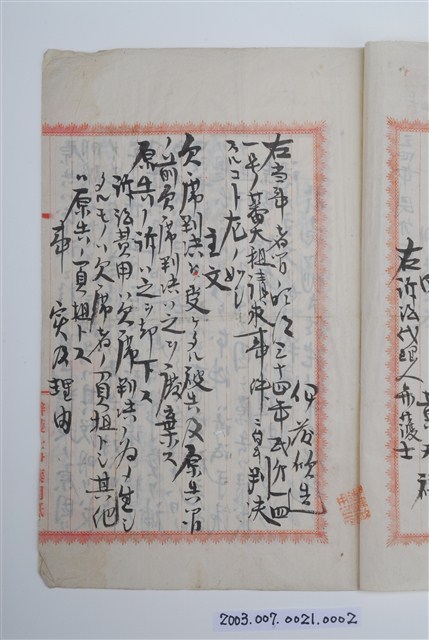 右訴訟代理人弁護士
伊藤欣造
右当事者間ノ明治三十四年民分四
一号ノ蕃大租請求事件ニ付キ判決
スルコト左ノ如シ
主文
欠席判決ヲ受ケタル被告及原告間
ノ前欠席判決ハ之ヲ廃棄ス
原告ノ訴ハ之ヲ却下ス
訴訟費用ハ欠席判決ノ為メ生シ
タルモノハ欠席者ノ負担トシ其他
ハ原告ノ負担トス
事実及理由
2003.007.0021.0002